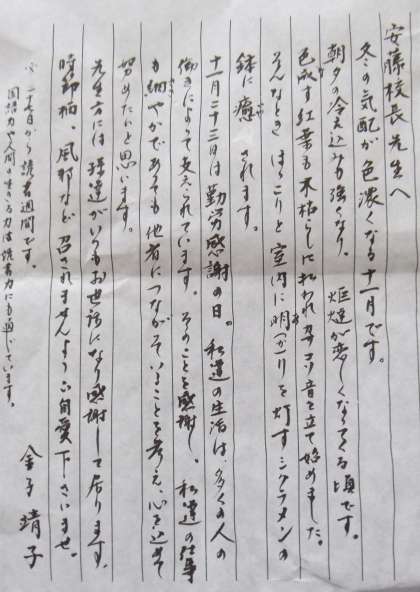 安藤校長先生へ
冬の気配が色濃くなる十一月です。
朝夕の冷え込みも強くなり、炬燵が恋しくなってくる頃です。
色成す紅葉も木枯らしに払われカサコソ音を立て始めました。
そんなとき ほっこりと室内に明(か)りを灯すシクラメンの
鉢に癒されます。
十一月二十三日は勤労感謝の日。私達の生活は、多くの人の
働きによって支えられています。そのことを感謝し、私達の仕事
も細やかであっても他者につながっていることを考え、心を込めて
努めたいと思います。
先生方には孫達がいつもお世話になり感謝して居ります。
時節柄、風邪など召されませんようご自愛下さいませ。
二十七日から読書週間です。
国語力や人間の生きる力は読書力にも通じています。
金子靖子